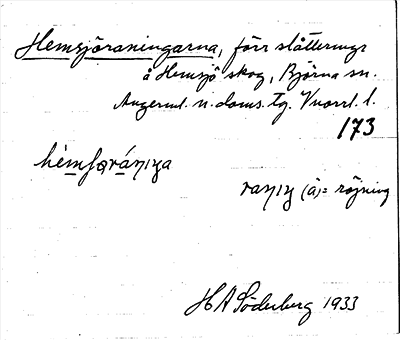 Hemsjöraningarna, förr slåtterängr
å Hemsjö skog, Björna sn.
Ångerml. n. doms. tg. Vnorrl. l.
173
hèmʃøráŋiŋa
raŋiŋ (å) = röjning
H A Söderberg 1933